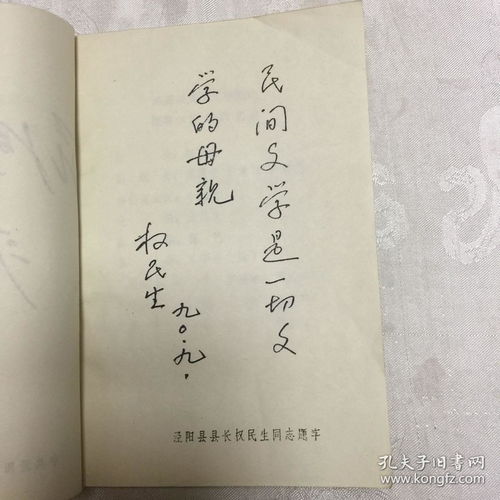 民间文学是一切文
学的母亲
权民生
九〇.九.
泾阳县县长权民生同志题字
孔夫子旧书网
www.kongfz.com